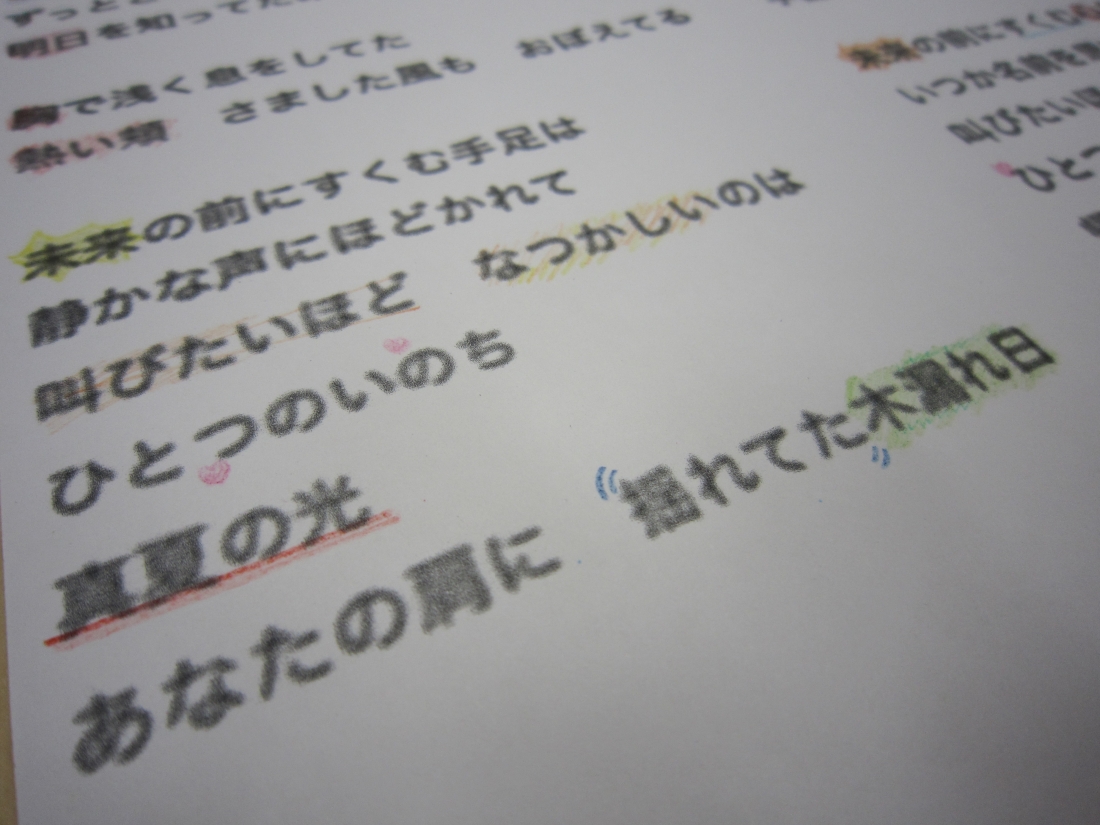 ずっとそ
明日を知ってた
胸で浅く息をしてた
熱い頬　さました風も　おぼえてる
未来の前にすくむ手足は
静かな声にほどかれて
叫びたいほど　なつかしいのは
ひとつのいのち
真夏の光
あなたの肩に　揺れてた木漏れ日
未来の前にすくむ
いつか名前を
叫びたいほ
ひとつ